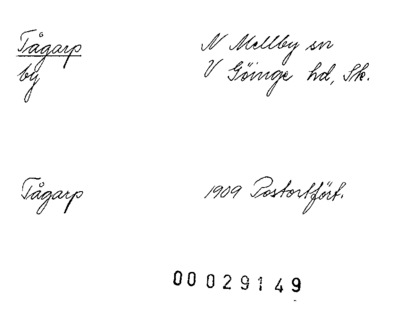 Tågarp N Mellby sn
by V Göinge hd, Sk.
Tågarp 1909 Postortfört.
00029149